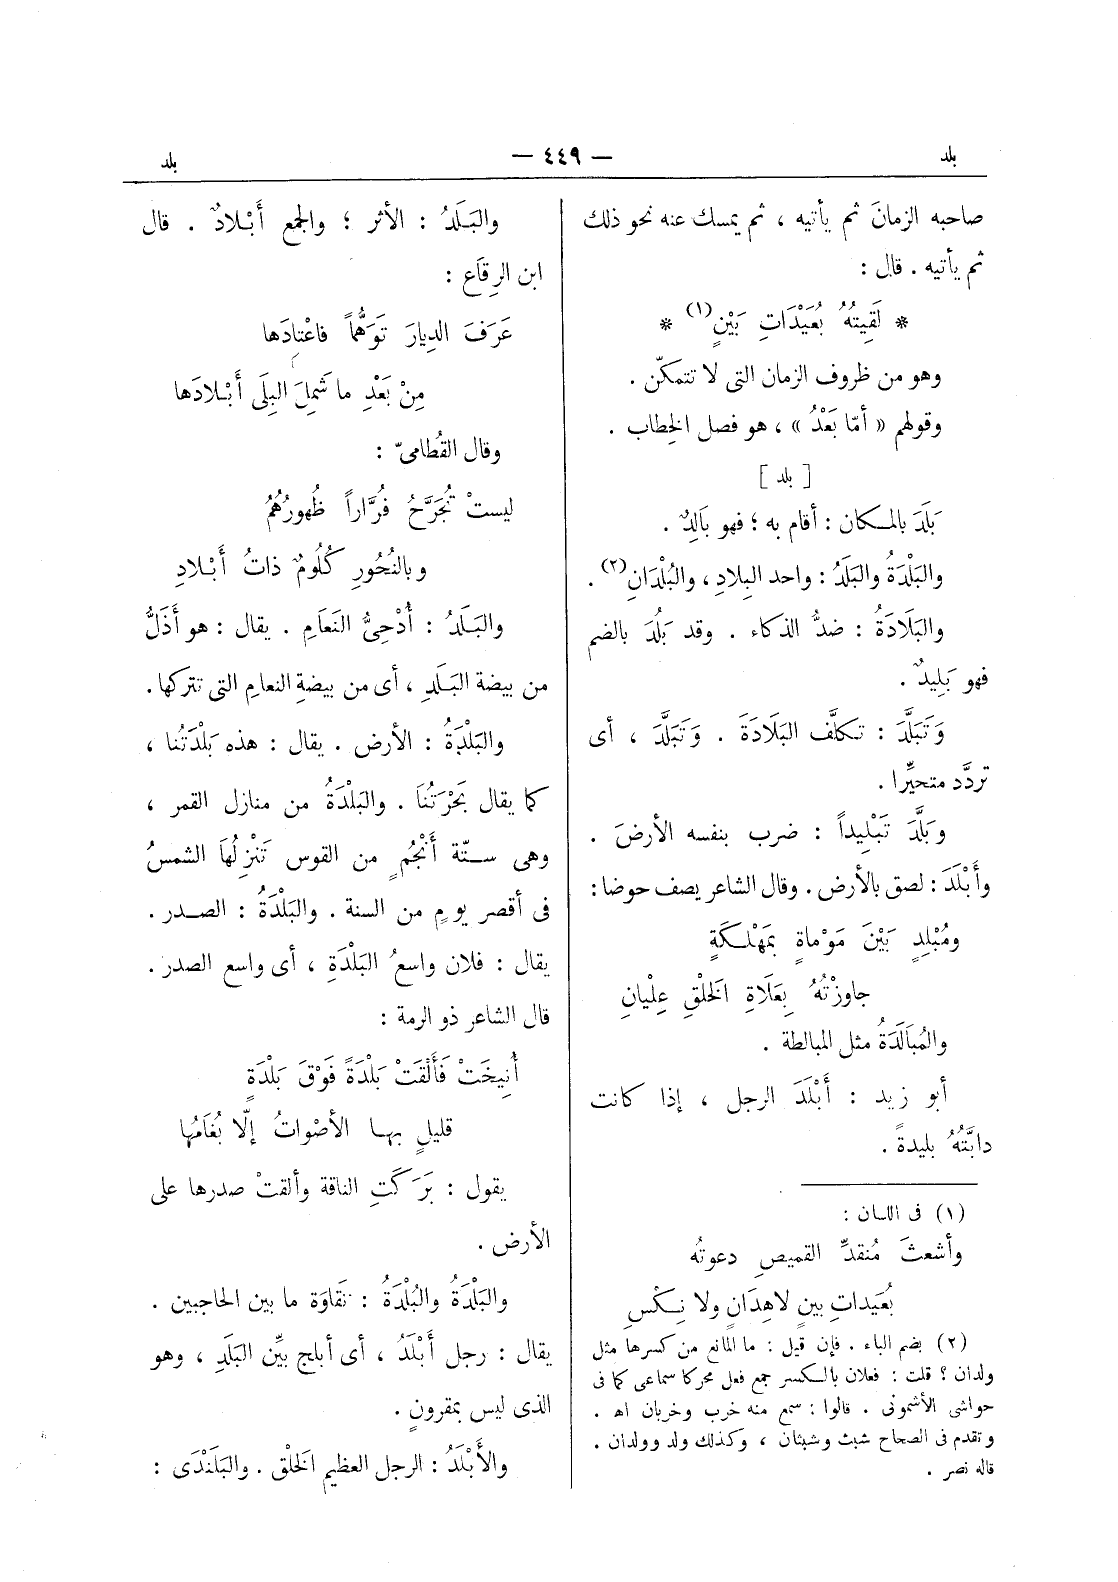 بلد
— ٤٤٩ —
بلد
صاحبه الزمانَ ثم يأتيه ، ثم يمسك عنه نحو ذلك
ثم يأتيه . قال :
* لَقِيتُهُ بُعَيْدَاتِ بَيْنٍ (١) *
وهو من ظروف الزمان التى لا تتمكّن .
وقولهم « أمّا بَعْدُ » ، هو فصل الخِطاب .
[ بلد ]
بَلَدَ بالمكان : أقام به ؛ فهو بَالِدٌ .
والبَلْدَةُ والبَلَدُ : واحد البِلادِ ، والبُلْدَانِ (٢) .
والبَلَادَةُ : ضدُّ الذكاء . وقد بَلُدَ بالضم
فهو بَلِيدٌ .
وَتَبَلَّدَ : تكلّف البَلَادَةَ . وَتَبَلَّدَ ، أى
تردَّد متحيِّرا .
وَبَلَّدَ تَبْلِيداً : ضرب بنفسه الأرضَ .
وأَبْلَدَ : لصق بالأرض . وقال الشاعر يصف حوضا :
ومُبْلِدٍ بَيْنَ مَوْماةٍ بمَهْلَكَةٍ
جاوزْتُهُ بِعَلَاةِ الخَلْقِ عِلْيان
والمُبَالَدَةُ مثل المبالطة .
أبو زيد : أَبْلَدَ الرجل ، إذا كانت
دابَّتُهُ بليدةً .
(١) فى اللسان :
وأشعثَ مُنقدِّ القميصِ دعوتُه
بُعَيدات بينٍ لاهِدَانٍ ولا نِكْسِ
(٢) بضم الباء . فإن قيل : ما المانع من كسرها مثل
ولدان ؟ قلت : فعلان بالكسر جمع فعل محركا سماعى كما فى
حواشى الأشمونى . قالوا : سمع منه خرب وخربان اهـ .
وتقدم فى الصحاح شبث وشبثان ، وكذلك ولد وولدان .
قاله نصر .
والبَلَدُ : الأثر ؛ والجمع أَبْلادٌ . قال
ابن الرِقَاع :
عَرَفَ الدِيارَ تَوَهُّماً فاعْتادَها
مِنْ بَعْدِ ما شَمِلَ البِلَى أَبْلادَها
وقال القُطامىّ :
ليستْ تُجَرَّحُ فُرَّاراً ظُهورُهُمُ
وبالنُحُورِ كُلُومٌ ذاتُ أَبْلادِ
والبَلَدُ : أُدْحِىُّ النَعَامِ . يقال : هو أَذَلُّ
من بيضة البَلَدِ ، أى من بيضةِ النعامِ التى تتركها .
والبَلْدَةُ : الأرض . يقال : هذه بَلْدَتُنا ،
كما يقال بَحْرَتُنَا . والبَلْدَةُ من منازل القمر ،
وهى ستّة أَنْجُمٍ من القوس تَنْزِلُهَا الشمسُ
فى أقصر يومٍ من السنة . والبَلْدَةُ : الصدر .
يقال : فلان واسعُ البَلْدَةِ ، أى واسع الصدر .
قال الشاعر ذو الرمة :
أُنِيخَتْ فَأَلْقَتْ بَلْدَةً فَوْقَ بَلْدَةٍ
قليلٍ بها الأصْواتُ إلّا بُغَامُها
يقول : بَرَكَتِ الناقة وألقتْ صدرها على
الأرض .
والبَلْدَةُ والبُلْدَةُ : نَقَاوَة ما بين الحاجبين .
يقال : رجل أَبْلَدُ ، أى أبلج بيِّن البَلَدِ ، وهو
الذى ليس بمقرونٍ .
والأَبْلَدُ : الرجل العظيم الخَلْق . والبَلَنْدَى :